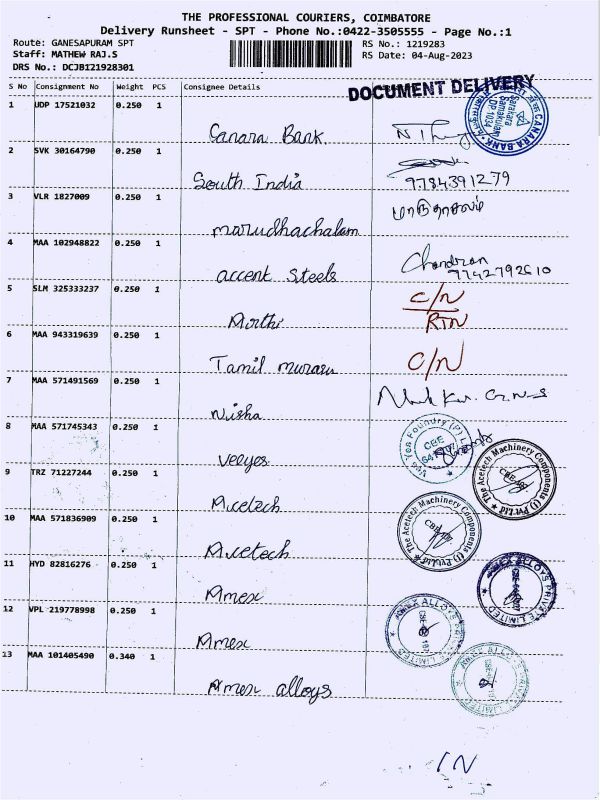 THE PROFESSIONAL COURIERS, COIMBATORE
Delivery Runsheet - SPT - Phone No.:0422-3505555 - Page No.:1
Route: GANESAPURAM SPT
RS No.: 1219283
Staff: MATHEW RAJ.S
RS Date: 04-Aug-2023
DRS No.: DCJB121928301
DOCUMENT DELIVERY
S No Consignment No Weight PCS Consignee Details
1 UDP 17521032 0.250 1
Canara Bank.
CANARA BANK
2 SVK 30164790 0.250 1
South India
9784391279
3 VLR 1827009 0.250 1
marudhachalam
4 MAA 102948822 0.250 1
accent Steels
Chandran
7742792610
5 SLM 325333237 0.250 1
C/N
RTN
6 MAA 943319639 0.250 1
Tamil murasu
C/N
7 MAA 571491569 0.250 1
Nisha
8 MAA 571745343 0.250 1
Veeyes
Vee Yes Foundry (P) Ltd
CBE
9 TRZ 71227244 0.250 1
Acetech
The Acetech Machinery Components (I) Pvt Ltd
10 MAA 571836909 0.250 1
Acetech
The Acetech Machinery Components (I) Pvt Ltd
11 HYD 82816276 0.250 1
Amex
AMEX ALLOYS PRIVATE LIMITED
12 VPL 219778998 0.250 1
Amex
AMEX ALLOYS PRIVATE LIMITED
13 MAA 101405490 0.340 1
Amex alloys
AMEX ALLOYS PRIVATE LIMITED